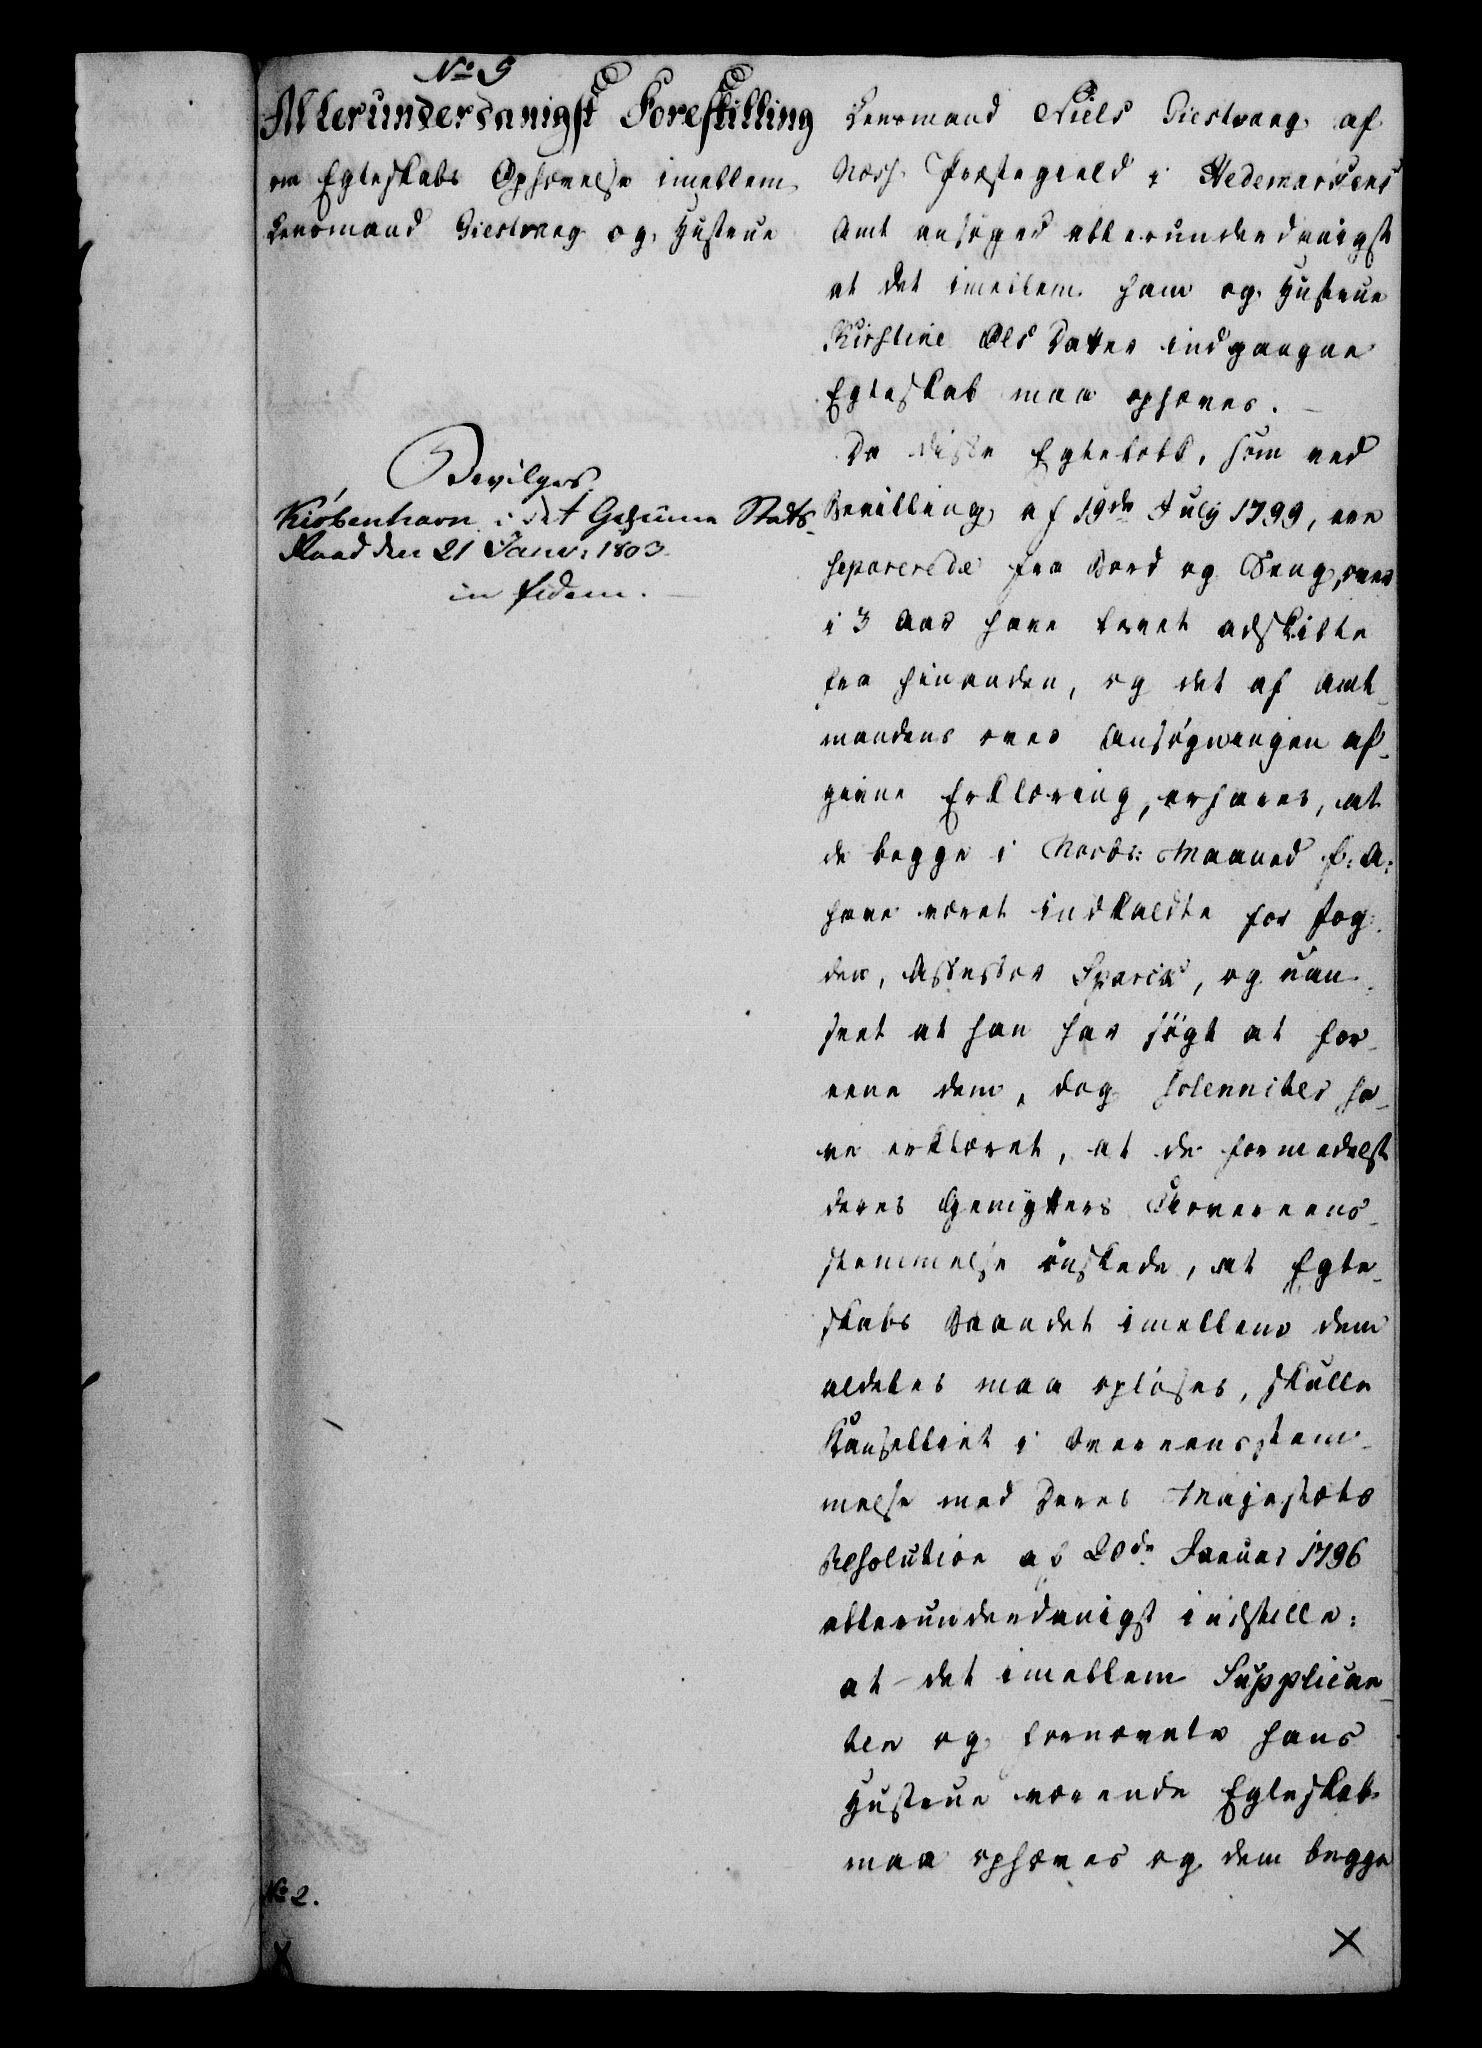 No 9
Allerunderdanigst Forestilling
om Egteskabs Ophævelse imellem
Lensmand Giestvang og Hustrue
Bevilges.
Kiøbenhavn i det Geheime Stats-
Raad den 21 Janv: 1803.
in fidem.
No 2.
Lensmand Niels Giestvang af
Næss Præstegield i Hedemarkens
Amt ansøger allerunderdanigst
at det imellem ham og Hustrue
Kirstine Ols Datter indgangne
Egteskab maa ophæves.
Da disse Egtefolk, som ved
Bevilling af 19de July 1799, ere
separerede fra Bord og Seng, over
i 3 Aar have levet adskilte
fra hinanden, og det af Amt-
mandens over Ansøgningen af-
givne Erklæring, erfares, at
de begge i Novbr: Maaned f: A:
have været indkaldte for Fog-
den, Assessor Sparck, og uan-
seet at han har søgt at for-
eene dem, dog solenniter ha-
ve erklæret, at de formedelst
deres Gemytters Uovereens-
stemmelse ønskede, at Egte-
skabs Baandet imellem dem
aldeles maa opløses, skulle
Kancelliet i Overeensstem-
melse med Deres Majestæts
Resolution af 20de Januar 1796
allerunderdanigst indstille:
at det imellem Supplican-
ten og fornævnte hans
Hustrue værende Egteskab
maa ophæves og dem begge